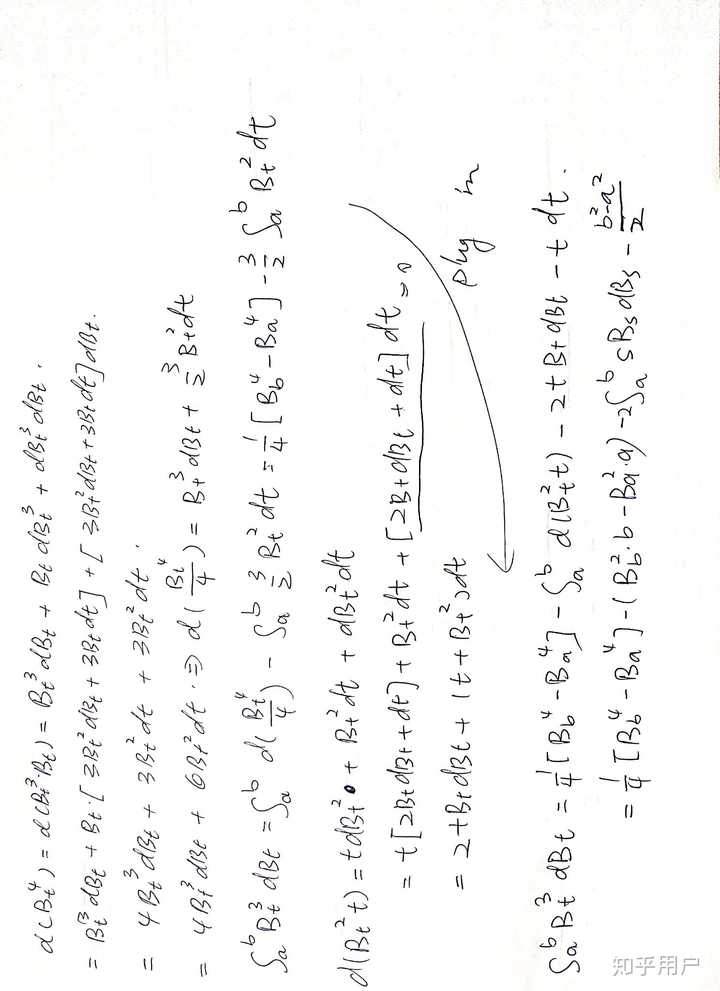 d(Bt⁴) = d(Bt³·Bt) = Bt³ dBt + Bt dBt³ + dBt³ dBt.
= Bt³ dBt + Bt·[3Bt² dBt + 3Bt dt] + [3Bt² dBt + 3Bt dt] dBt.
= 4Bt³ dBt + 3Bt² dt + 3Bt² dt.
= 4Bt³ dBt + 6Bt² dt. ⇒ d(Bt⁴/4) = Bt³ dBt + 3/2 Bt² dt
∫ₐᵇ Bt³ dBt = ∫ₐᵇ d(Bt⁴/4) - ∫ₐᵇ 3/2 Bt² dt = 1/4 [Bb⁴ - Ba⁴] - 3/2 ∫ₐᵇ Bt² dt
d(Bt² t) = t dBt² + Bt² dt + dBt² dt
= t[2Bt dBt + dt] + Bt² dt + [2Bt dBt + dt] dt = 0
= 2tBt dBt + (t + Bt²) dt
plug in
∫ₐᵇ Bt³ dBt = 1/4 [Bb⁴ - Ba⁴] - ∫ₐᵇ d(Bt² t) - 2tBt dBt - t dt.
= 1/4 [Bb⁴ - Ba⁴] - (Bb²·b - Ba²·a) - 2∫ₐᵇ sBs dBs - (b² - a²)/2
知乎用户